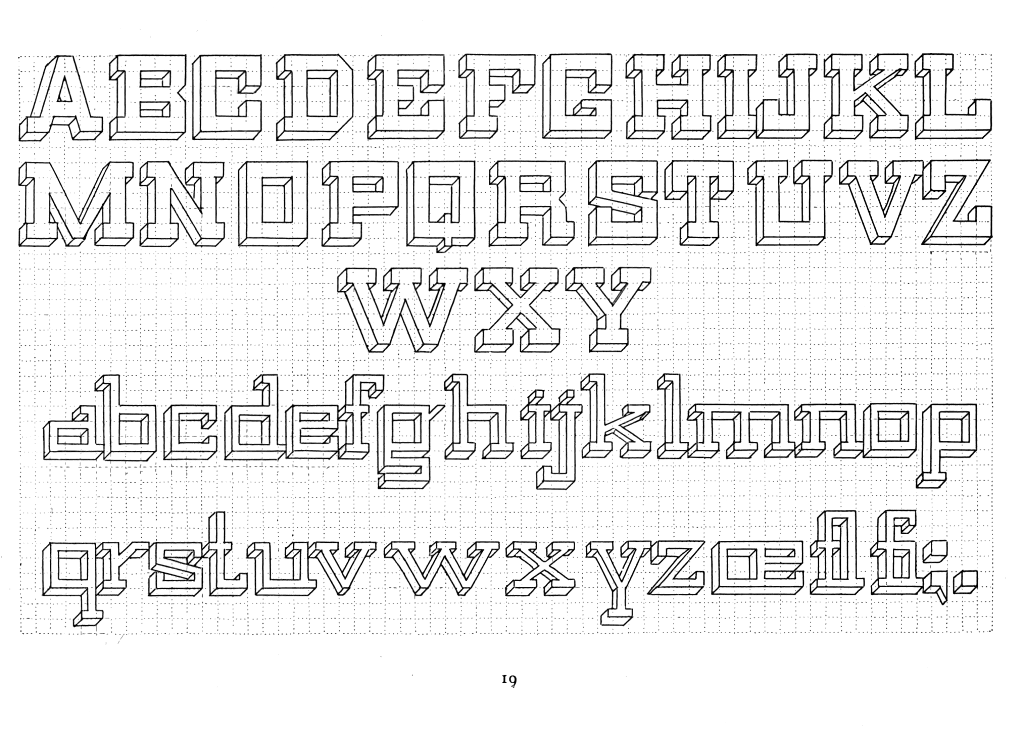 ABCDEFGHIJKL
MNOPQRSTUVZ
WXY
abcdefghijklmnop
qrstuvwxyzœflfi;.
19